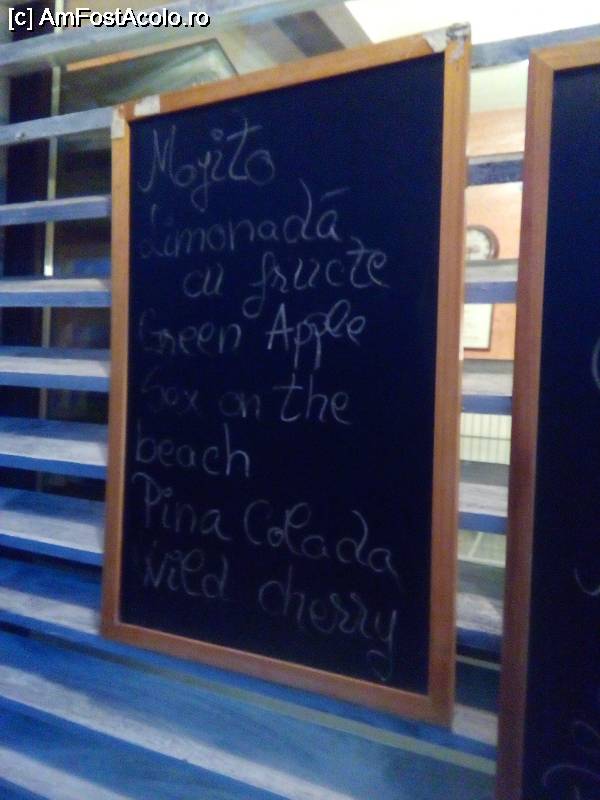 [c] AmFostAcolo.ro
Mojito
Limonadă
cu fructe
Green Apple
Sex on the
beach
Pina Colada
Wild cherry